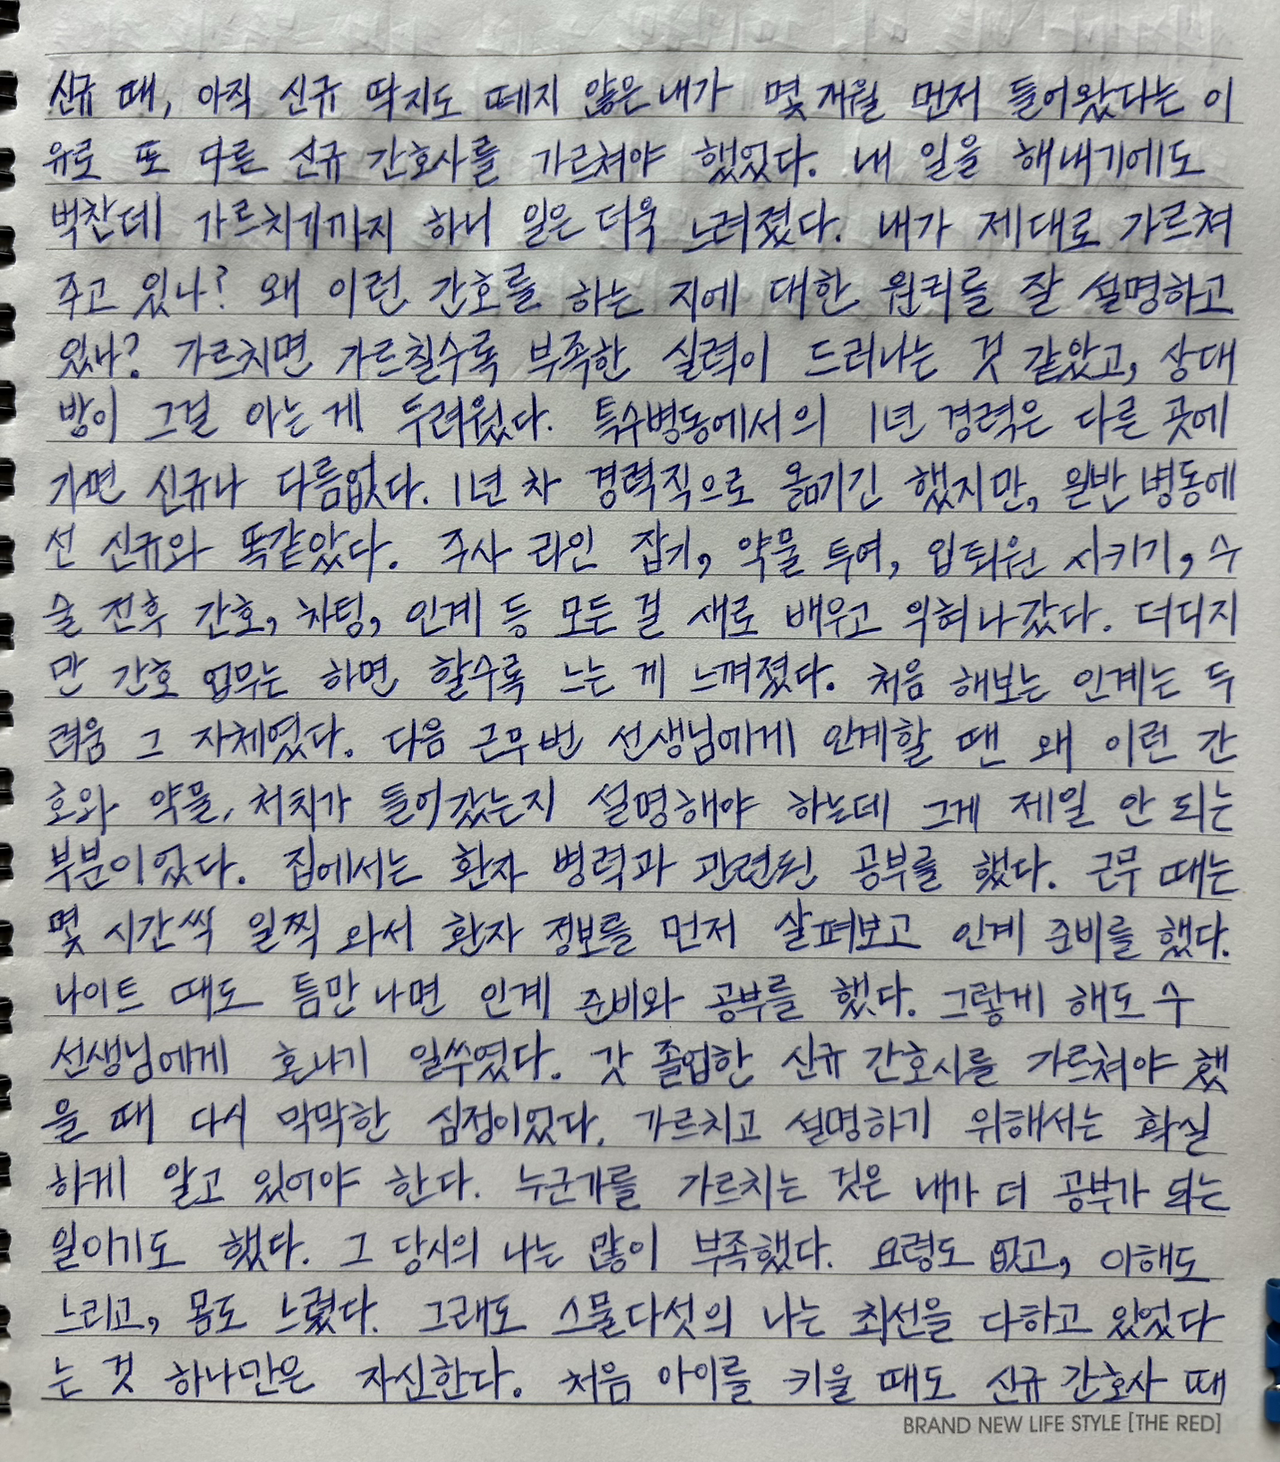 신규 때, 아직 신규 딱지도 떼지 않은 내가 몇 개월 먼저 들어왔다는 이
유로 또 다른 신규 간호사를 가르쳐야 했었다. 내 일을 해내기에도
벅찬데 가르치기까지 하니 일은 더욱 느려졌다. 내가 제대로 가르쳐
주고 있나? 왜 이런 간호를 하는 지에 대한 원리를 잘 설명하고
있나? 가르치면 가르칠수록 부족한 실력이 드러나는 것 같았고, 상대
방이 그걸 아는 게 두려웠다. 특수병동에서의 1년 경력은 다른 곳에
가면 신규나 다름없다. 1년 차 경력직으로 옮기긴 했지만, 일반 병동에
선 신규와 똑같았다. 주사 라인 잡기, 약물 투여, 입퇴원 시키기, 수
술 전후 간호, 차팅, 인계 등 모든 걸 새로 배우고 익혀 나갔다. 더디지
만 간호 업무는 하면 할수록 느는 게 느껴졌다. 처음 해보는 인계는 두
려움 그 자체였다. 다음 근무 번 선생님에게 인계할 땐 왜 이런 간
호와 약물, 처치가 들어갔는지 설명해야 하는데 그게 제일 안 되는
부분이었다. 집에서는 환자 병력과 관련된 공부를 했다. 근무 때는
몇 시간씩 일찍 와서 환자 정보를 먼저 살펴보고 인계 준비를 했다.
나이트 때도 틈만 나면 인계 준비와 공부를 했다. 그렇게 해도 수
선생님에게 혼나기 일쑤였다. 갓 졸업한 신규 간호사를 가르쳐야 했
을 때 다시 막막한 심정이었다. 가르치고 설명하기 위해서는 확실
하게 알고 있어야 한다. 누군가를 가르치는 것은 내가 더 공부가 되는
일이기도 했다. 그 당시의 나는 많이 부족했다. 요령도 없고, 이해도
느리고, 몸도 느렸다. 그래도 스물다섯의 나는 최선을 다하고 있었다
는 것 하나만은 자신한다. 처음 아이를 키울 때도 신규 간호사 때
BRAND NEW LIFE STYLE [THE RED]